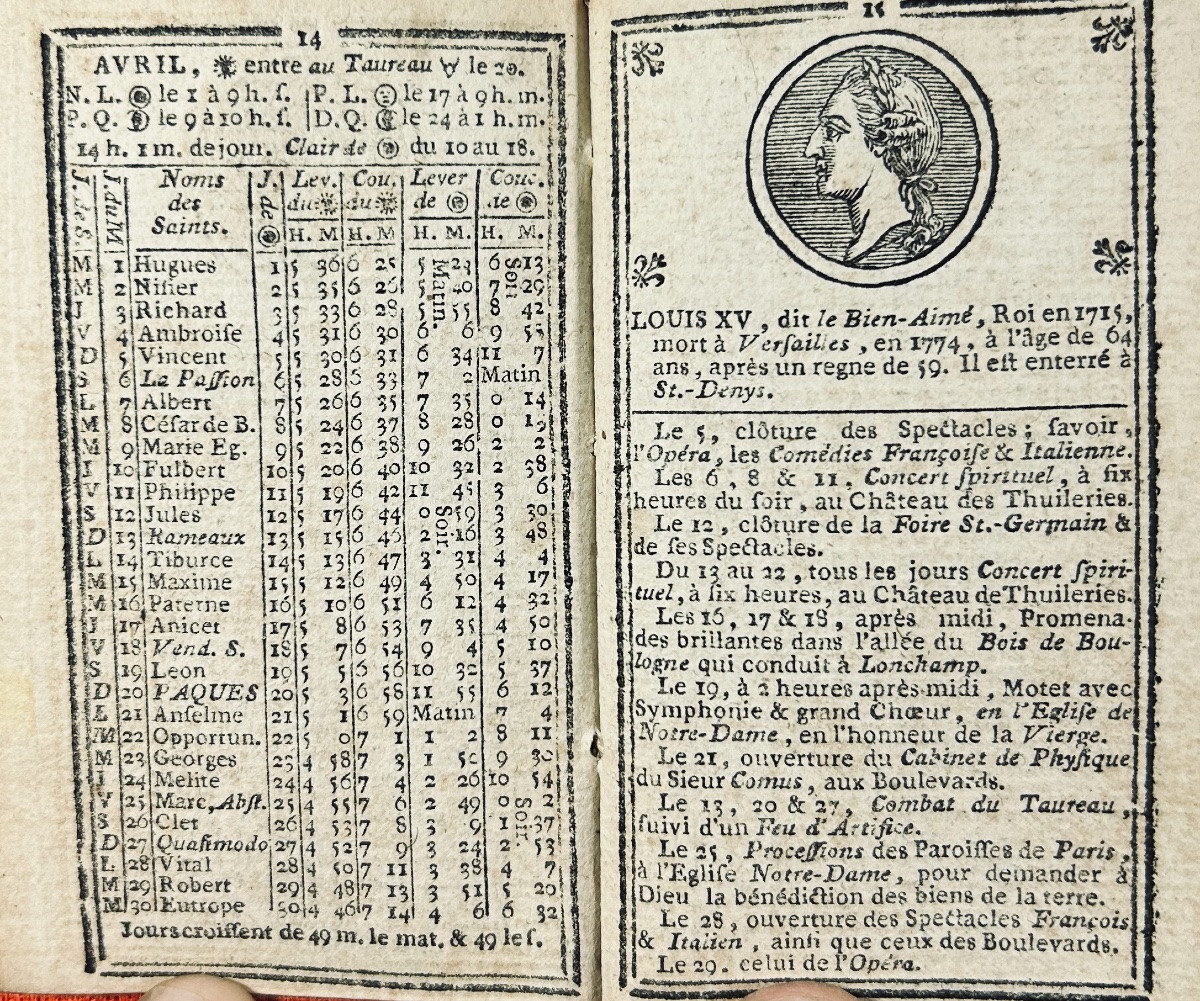 14
AVRIL, entre au Taureau ♉ le 20.
N. L. le 1 à 9 h. ſ. P. L. le 17 à 9 h. m.
P. Q. le 9 à 10 h. ſ. D. Q. le 24 à 1 h. m.
14 h. 1 m. de jour. Clair de du 10 au 18.
J. de S. J. du M Noms des Saints. J. de Lev. du Cou. du Lever de Couc. de
H. M H. M H. M. H. M.
M 1 Hugues 1 5 36 6 25 5 Matin. 6 Soir 13
M 2 Niſier 2 5 35 6 26 5 40 7 29
J 3 Richard 3 5 33 6 28 5 55 8 42
V 4 Ambroiſe 4 5 31 6 30 6 6 9 55
D 5 Vincent 5 5 30 6 31 6 34 11 7
S 6 La Paſſion 6 5 28 6 33 7 2 Matin
L 7 Albert 7 5 26 6 35 7 35 0 14
M 8 Céſar de B. 8 5 24 6 37 8 28 0
M 9 Marie Eg. 9 5 22 6 38 9 26 2 2
J 10 Fulbert 10 5 20 6 40 10 32 2 38
V 11 Philippe 11 5 19 6 42 11 45 3 6
S 12 Jules 12 5 17 6 44 0 Soir. 59 3 30
D 13 Rameaux 13 5 15 6 46 2 16 3 48
L 14 Tiburce 14 5 13 6 47 3 31 4 4
M 15 Maxime 15 5 12 6 49 4 50 4 17
M 16 Paterne 16 5 10 6 51 6 12 4 32
J 17 Anicet 17 5 8 6 53 7 35 4 50
V 18 Vend. S. 18 5 7 6 54 9 4 5 10
S 19 Leon 19 5 5 6 56 10 32 5 37
D 20 PAQUES 20 5 3 6 58 11 55 6 12
L 21 Anſelme 21 5 1 6 59 Matin 7 4
M 22 Opportun. 22 5 0 7 1 1 2 8 11
M 23 Georges 23 4 58 7 3 1 9 30
J 24 Melite 24 4 56 7 4 2 26 10 54
V 25 Marc, Abſt. 25 4 55 7 6 2 49 0 Soir. 2
S 26 Clet 26 4 53 7 8 3 9 1 37
D 27 Quaſimodo 27 4 52 7 9 3 24 2 53
L 28 Vital 28 4 50 7 11 3 38 4 7
M 29 Robert 29 4 48 7 13 3 51 5 20
M 30 Eutrope 30 4 46 7 14 4 6 6 32
Jours croiſſent de 49 m. le mat. & 49 le ſ.
15
LOUIS XV, dit le Bien-Aimé, Roi en 1715,
mort à Verſailles, en 1774, à l'âge de 64
ans, après un regne de 59. Il eſt enterré à
St.-Denys.
Le 5, clôture des Spectacles; ſavoir,
l'Opéra, les Comédies Françoiſe & Italienne.
Les 6, 8 & 11, Concert ſpirituel, à ſix
heures du ſoir, au Château des Thuileries.
Le 12, clôture de la Foire St.-Germain &
de ſes Spectacles.
Du 13 au 22, tous les jours Concert ſpiri-
tuel, à ſix heures, au Château de Thuileries.
Les 16, 17 & 18, après midi, Promena-
des brillantes dans l'allée du Bois de Bou-
logne qui conduit à Lonchamp.
Le 19, à 2 heures après-midi, Motet avec
Symphonie & grand Chœur, en l'Egliſe de
Notre-Dame, en l'honneur de la Vierge.
Le 21, ouverture du Cabinet de Phyſique
du Sieur Comus, aux Boulevards.
Le 13, 20 & 27, Combat du Taureau,
ſuivi d'un Feu d'Artifice.
Le 25, Proceſſions des Paroiſſes de Paris,
à l'Egliſe Notre-Dame, pour demander à
Dieu la bénédiction des biens de la terre.
Le 28, ouverture des Spectacles François
& Italien, ainſi que ceux des Boulevards.
Le 29. celui de l'Opéra.